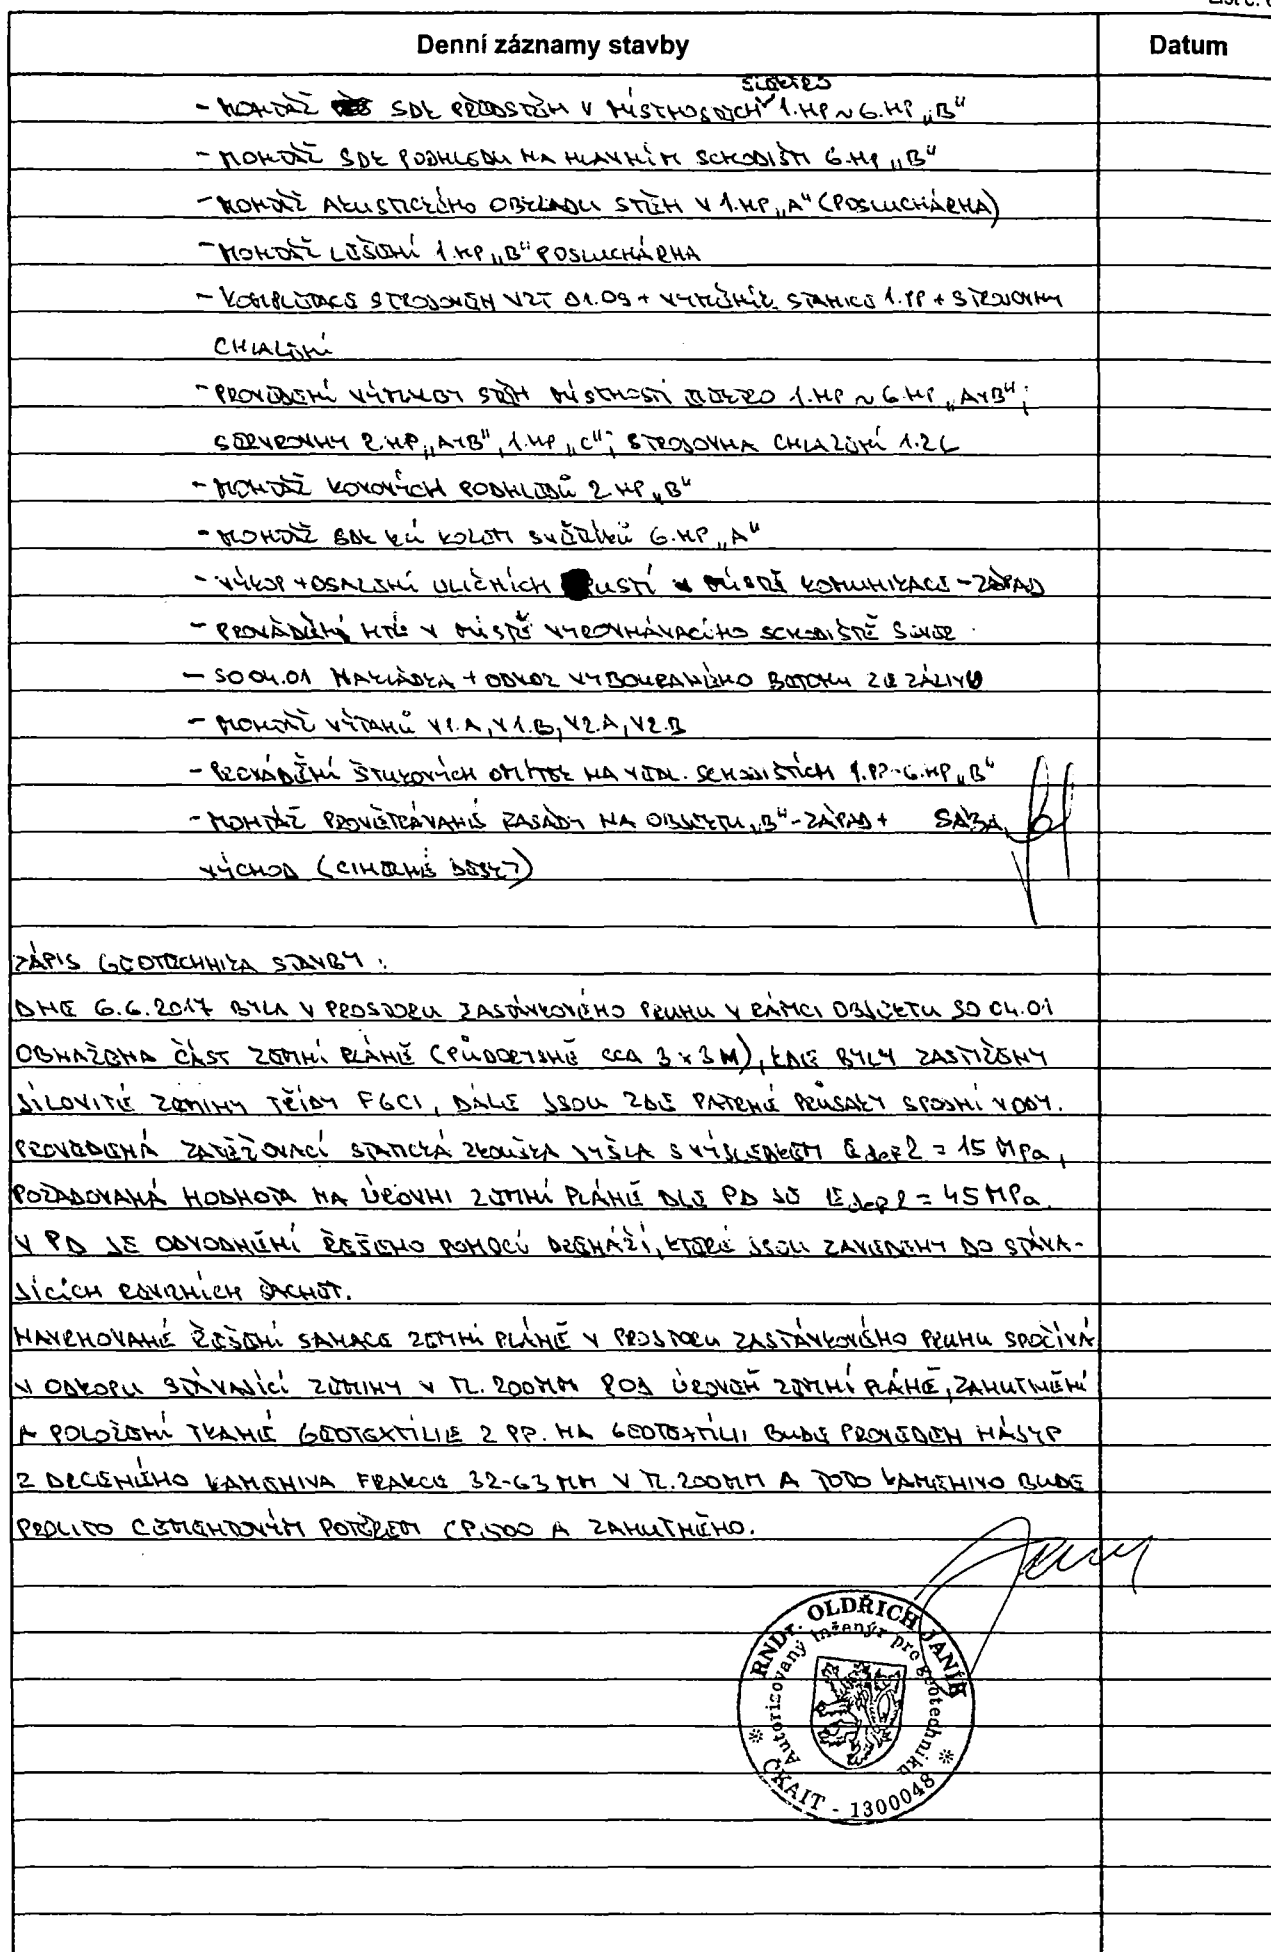 Denní záznamy stavby
Datum
SILNO
- MONTÁŽ SDK PŘEDSTĚN V MÍSTNOSTECH 1.NP ~ 6.NP „B“
- MONTÁŽ SDK PODHLEDU NA HLAVNÍM SCHODIŠTI 6.NP „B“
- MONTÁŽ AKUSTICKÉHO OBKLADU STĚN V 1.NP „A“ (POSLUCHÁRNA)
- MONTÁŽ LEŠENÍ 1.NP „B“ POSLUCHÁRNA
- KOMPLETACE STROJOVEN VZT 01.09 + VÝMĚNÍK. STANICE 1.PP + STROJOVNY
CHLAZENÍ
- PROVEDENÍ VÝMALBY STĚN MÍSTNOSTÍ 1.NP ~ 6.NP „A+B“;
SERVEROVNY 2.NP „A+B“, 1.NP „C“; STROJOVNA CHLAZENÍ
- MONTÁŽ KOVOVÝCH PODHLEDŮ 2.NP „B“
- MONTÁŽ SDK KCÍ KOLEM SVĚTLÍKŮ 6.NP „A“
- VÝKOP + OSAZENÍ ULIČNÍCH VPUSTÍ V MÍSTĚ KOMUNIKACE - ZÁPAD
- PROVÁDĚNÍ HTÚ V MÍSTĚ VYROVNÁVACÍHO SCHODIŠTĚ SEVER
- SO 04.01 NAKLÁDKA + ODVOZ VYBOURANÉHO BETONU ZE ZÁLIVU
- MONTÁŽ VÝTAHŮ V1.A, V1.B, V2.A, V2.B
- PROVÁDĚNÍ ŠTUKOVÝCH OMÍTEK NA VEDL. SCHODIŠTÍCH 1.PP-6.NP „B“
- MONTÁŽ PROVĚTRÁVANÉ FASÁDY NA OBJEKTU „B“ - ZÁPAD +
VÝCHOD (CIHELNÉ DESKY)
ZÁPIS GEOTECHNIKA STAVBY:
DNE 6.6.2017 BYLA V PROSTORU ZASTÁVKOVÉHO PRUHU V RÁMCI OBJEKTU SO 04.01
OBNAŽENA ČÁST ZEMNÍ PLÁNĚ (PŮDORYSNĚ CCA 3 x 3 M), KDE BYLY ZASTIŽENY
JÍLOVITÉ ZEMINY TŘÍDY F6CI, DÁLE JSOU ZDE PATRNÉ PRŮSAKY SPODNÍ VODY.
PROVEDENÁ ZATĚŽOVACÍ STATICKÁ ZKOUŠKA VYŠLA S VÝSLEDKEM Edef2 = 15 MPa,
POŽADOVANÁ HODNOTA NA ÚROVNI ZEMNÍ PLÁNĚ DLE PD JE Edef2 = 45 MPa.
V PD JE ODVODNĚNÍ ŘEŠENO POMOCÍ DRENÁŽÍ, KTERÉ JSOU ZAVEDENY DO STÁVA-
JÍCÍCH REVIZNÍCH ŠACHET.
NAVRHOVANÉ ŘEŠENÍ SANACE ZEMNÍ PLÁNĚ V PROSTORU ZASTÁVKOVÉHO PRUHU SPOČÍVÁ
V ODKOPU STÁVAJÍCÍ ZEMINY V TL. 200MM POD ÚROVEŇ ZEMNÍ PLÁNĚ, ZAHUTNĚNÍ
A POLOŽENÍ TKANÉ GEOTEXTILIE 2 PP. NA GEOTEXTILII BUDE PROVEDEN NÁSYP
Z DRCENÉHO KAMENIVA FRAKCE 32-63 MM V TL. 200MM A TOTO KAMENIVO BUDE
PROLITO CEMENTOVÝM POTĚREM CP.500 A ZAHUTNĚNO.
RNDr. OLDŘICH JANÍK
Autorizovaný inženýr pro geotechniku
ČKAIT - 1300048